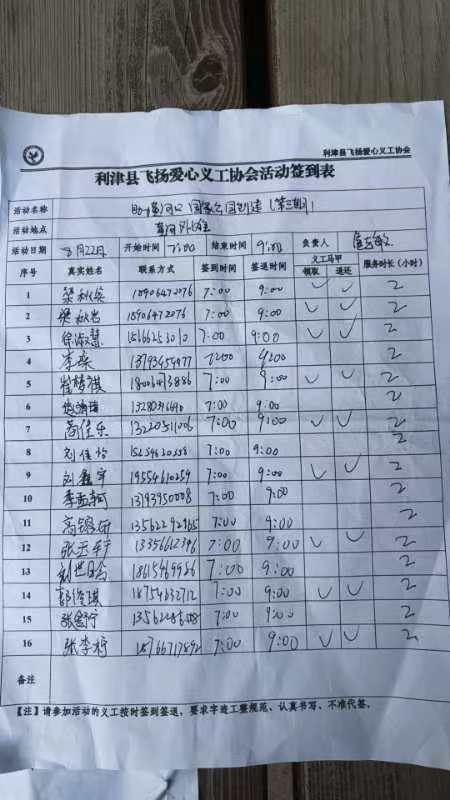 利津县飞扬爱心义工协会
利津县飞扬爱心义工协会活动签到表
活动名称 黄河口国家公园创建(第三期)
活动地点
活动日期 8月22日 开始时间 7:00 结束时间 9:00 负责人
序号 真实姓名 联系方式 签到时间 签退时间 义工马甲 服务时长(小时)
领取 退还
1 梁秋 18906472076 7:00 9:00 ✓ ✓ 2
2 梁秋 18906472076 7:00 9:00 ✓ ✓ 2
3 徐淑慧 7:00 9:00 ✓ ✓ 2
4 李 13793459477 7:00 9:00 2
5 崔梦祺 7:00 9:00 ✓ ✓ 2
6 7:00 9:00 2
7 佳乐 13220511006 7:00 9:00 ✓ ✓ 2
8 刘佳 7:00 9:00 2
9 刘鑫宇 19554610259 7:00 9:00 ✓ ✓ 2
10 李孟轲 13793950008 7:00 9:00 2
11 高 13562292965 7:00 9:00 2
12 张 13356612396 7:00 9:00 ✓ ✓ 2
13 刘世 18615969986 7:00 9:00 2
14 18754632712 7:00 9:00 ✓ ✓ 2
15 张 7:00 9:00 2
16 张李 18766717892 7:00 9:00 ✓ ✓ 2
备注
【注】请参加活动的义工按时签到签退,要求字迹工整规范、认真书写、不准代签。